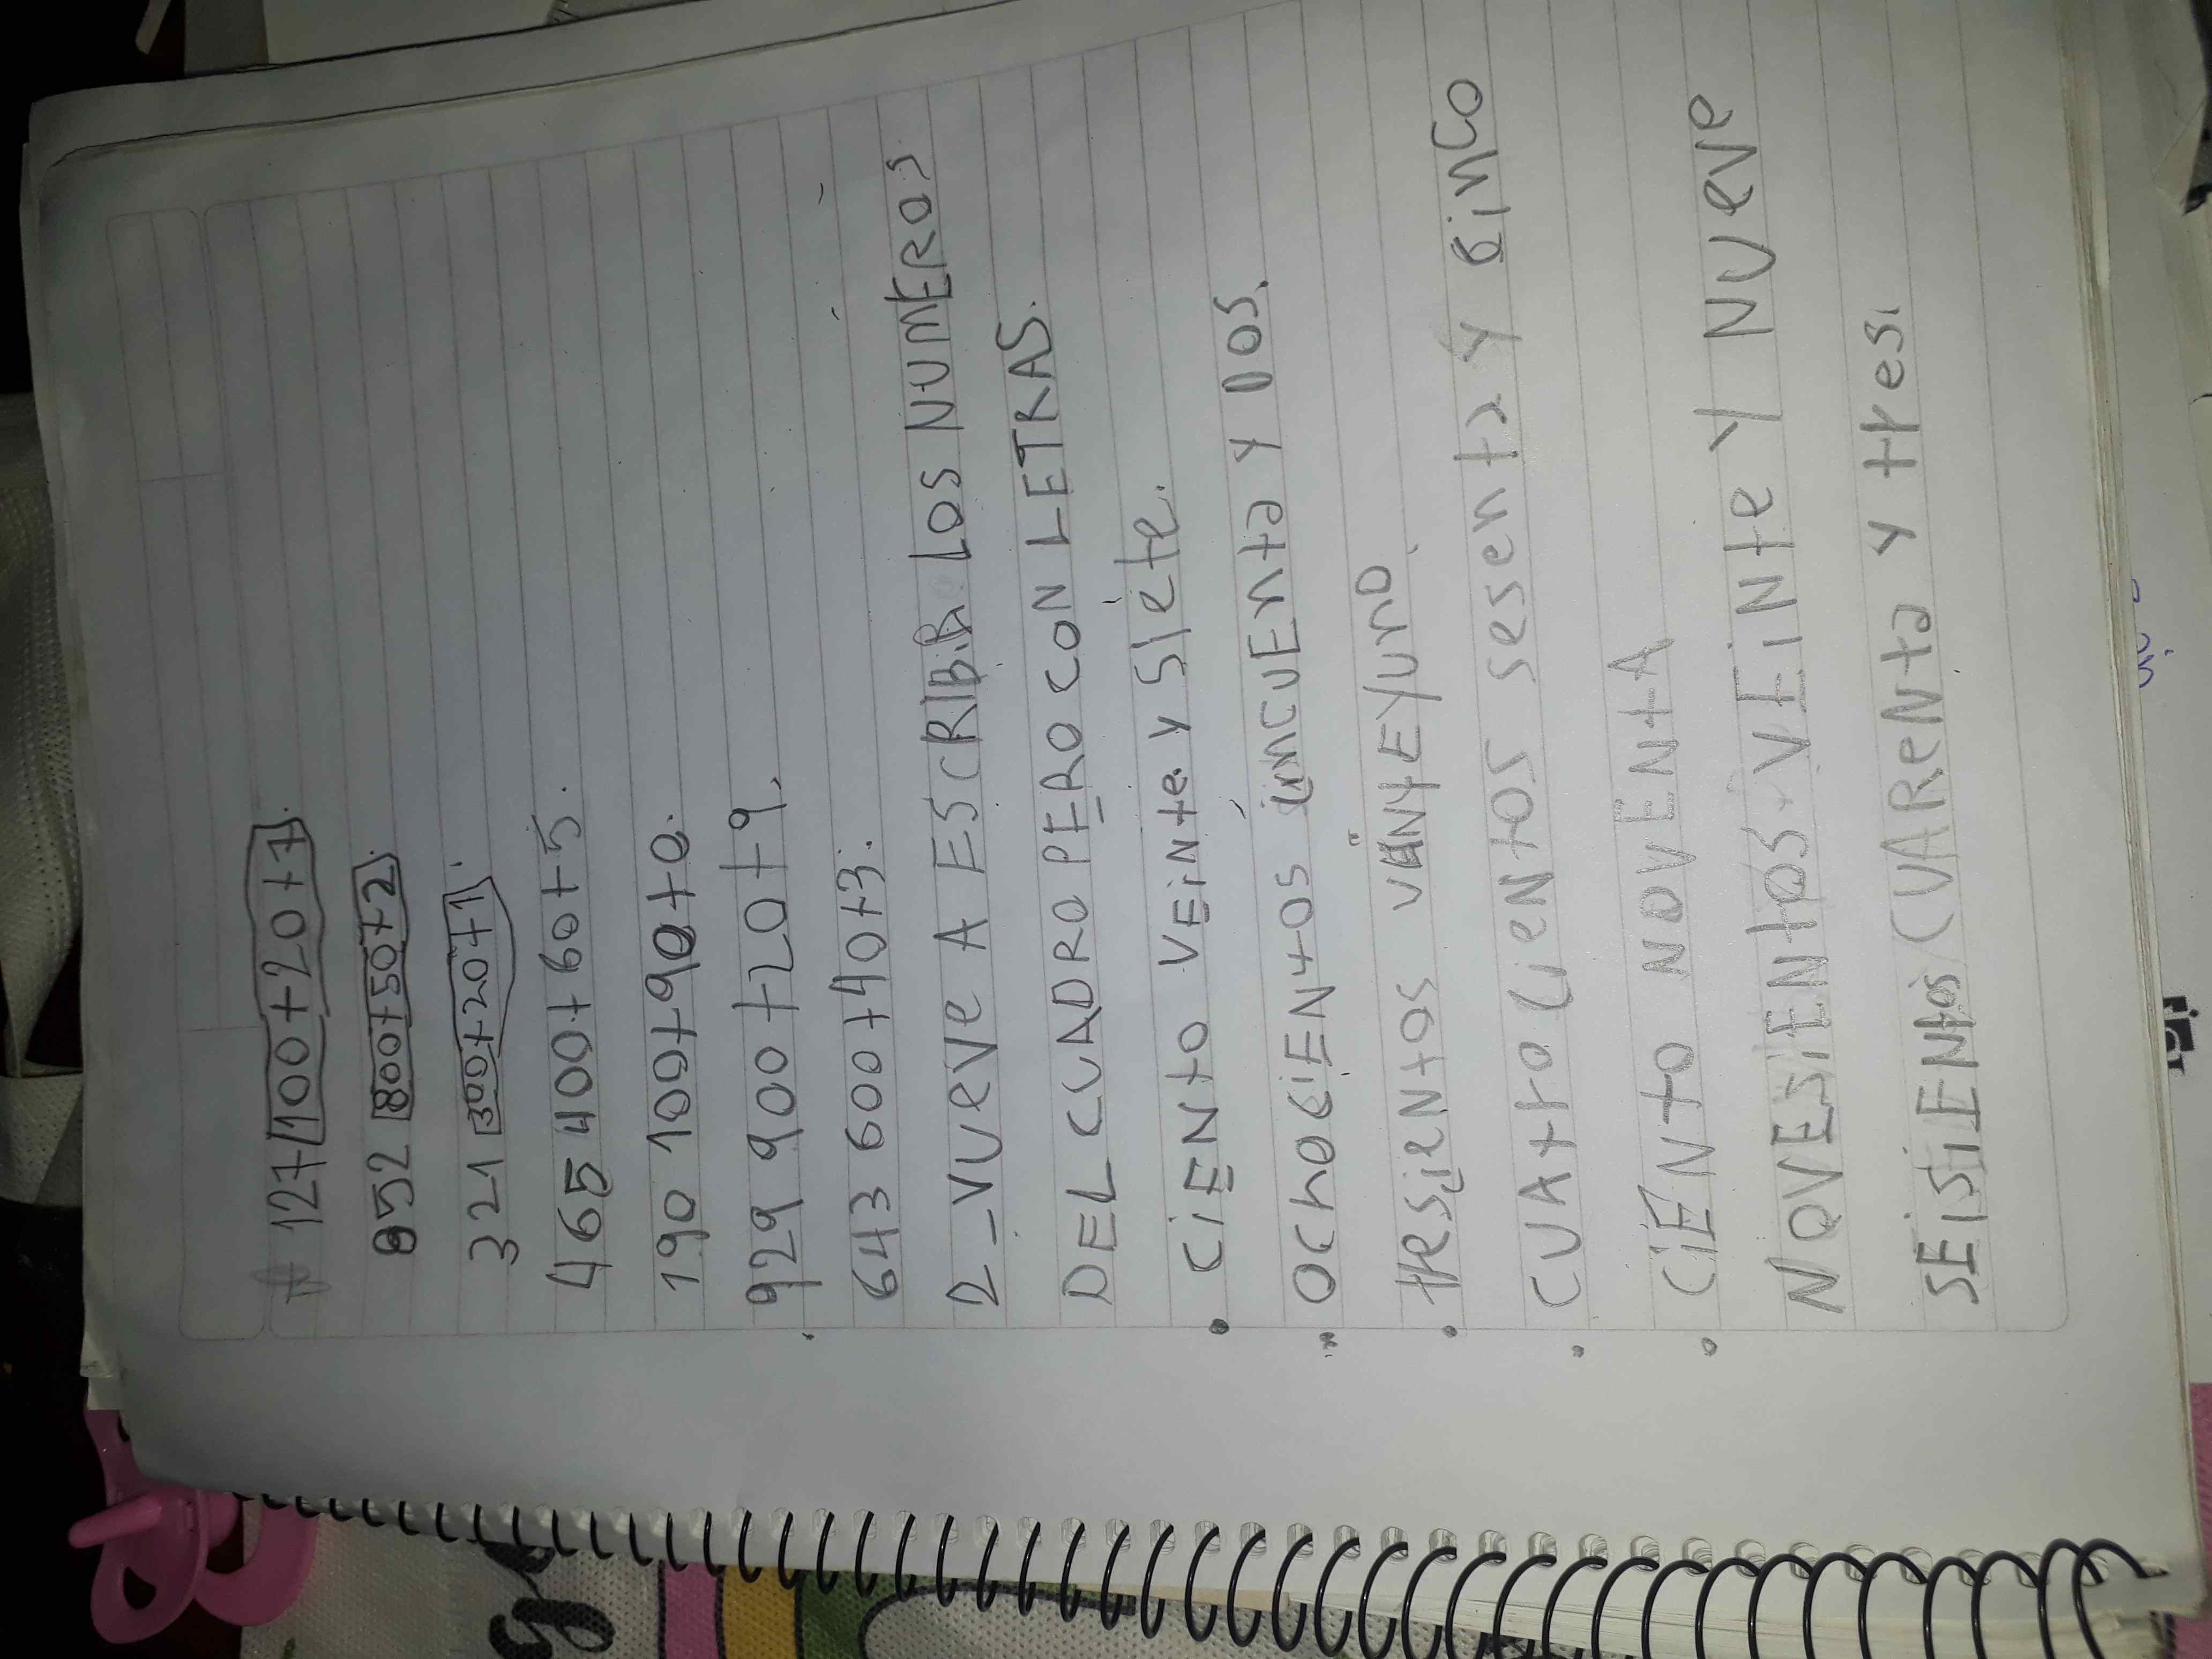 127 100+20+7.
852 800+50+2.
321 300+20+1.
465 400+60+5.
190 100+90+0.
929 900+20+9.
643 600+40+3.
2_VUeVe A ESCRIBiR LOS NUMEROS
DEL CUADRO PERO CON LETRAS.
• CiENto VEiNte y Siete.
OchoCiENtos cincuEnta y DOS.
• tresieNtos VEiNtEyuno.
• CUAtroCieNtos sesenta y ciNco
• CiENto NOVENtA
NOVESiENtos VEiNte y NUeVe
SEiSiENtos CUAReNta y tres.